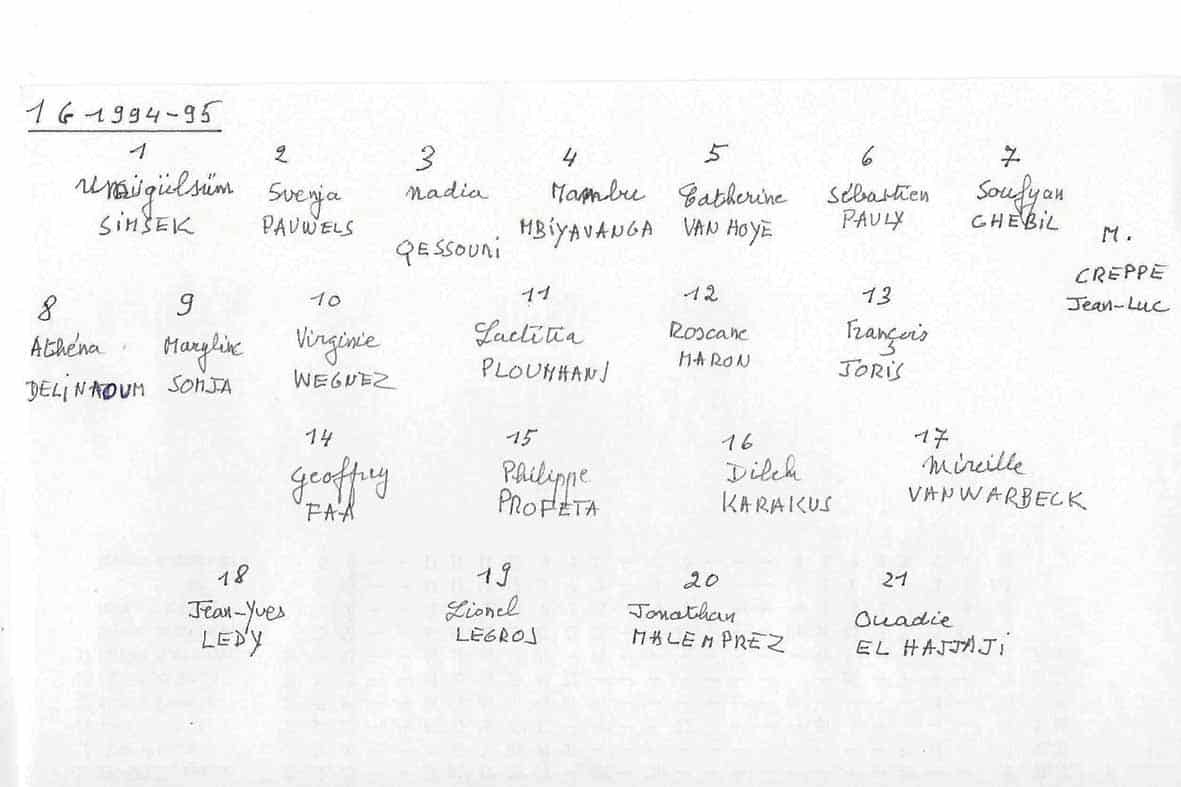 1 G 1994-95
1 2 3 4 5 6 7
Svenja Nadia Mambu Catherine Sébastien Soufyan
SIMSEK PAUWELS QESSOURI MBIYAVANGA VAN HOYE PAULY GHEBIL
M.
CREPPE
Jean-Luc
8 9 10 11 12 13
Athéna Maryline Virginie Laetitia Roseane François
DELINAOUM SOMJA WEGNEZ PLOUMHANS MARON JORIS
14 15 16 17
Geoffrey Philippe Dilek Mireille
FAA PROFETA KARAKUS VANWARBECK
18 19 20 21
Jean-Yves Lionel Jonathan Ouadie
LEDY LEGROS MALEMPREZ EL HAJJAJI